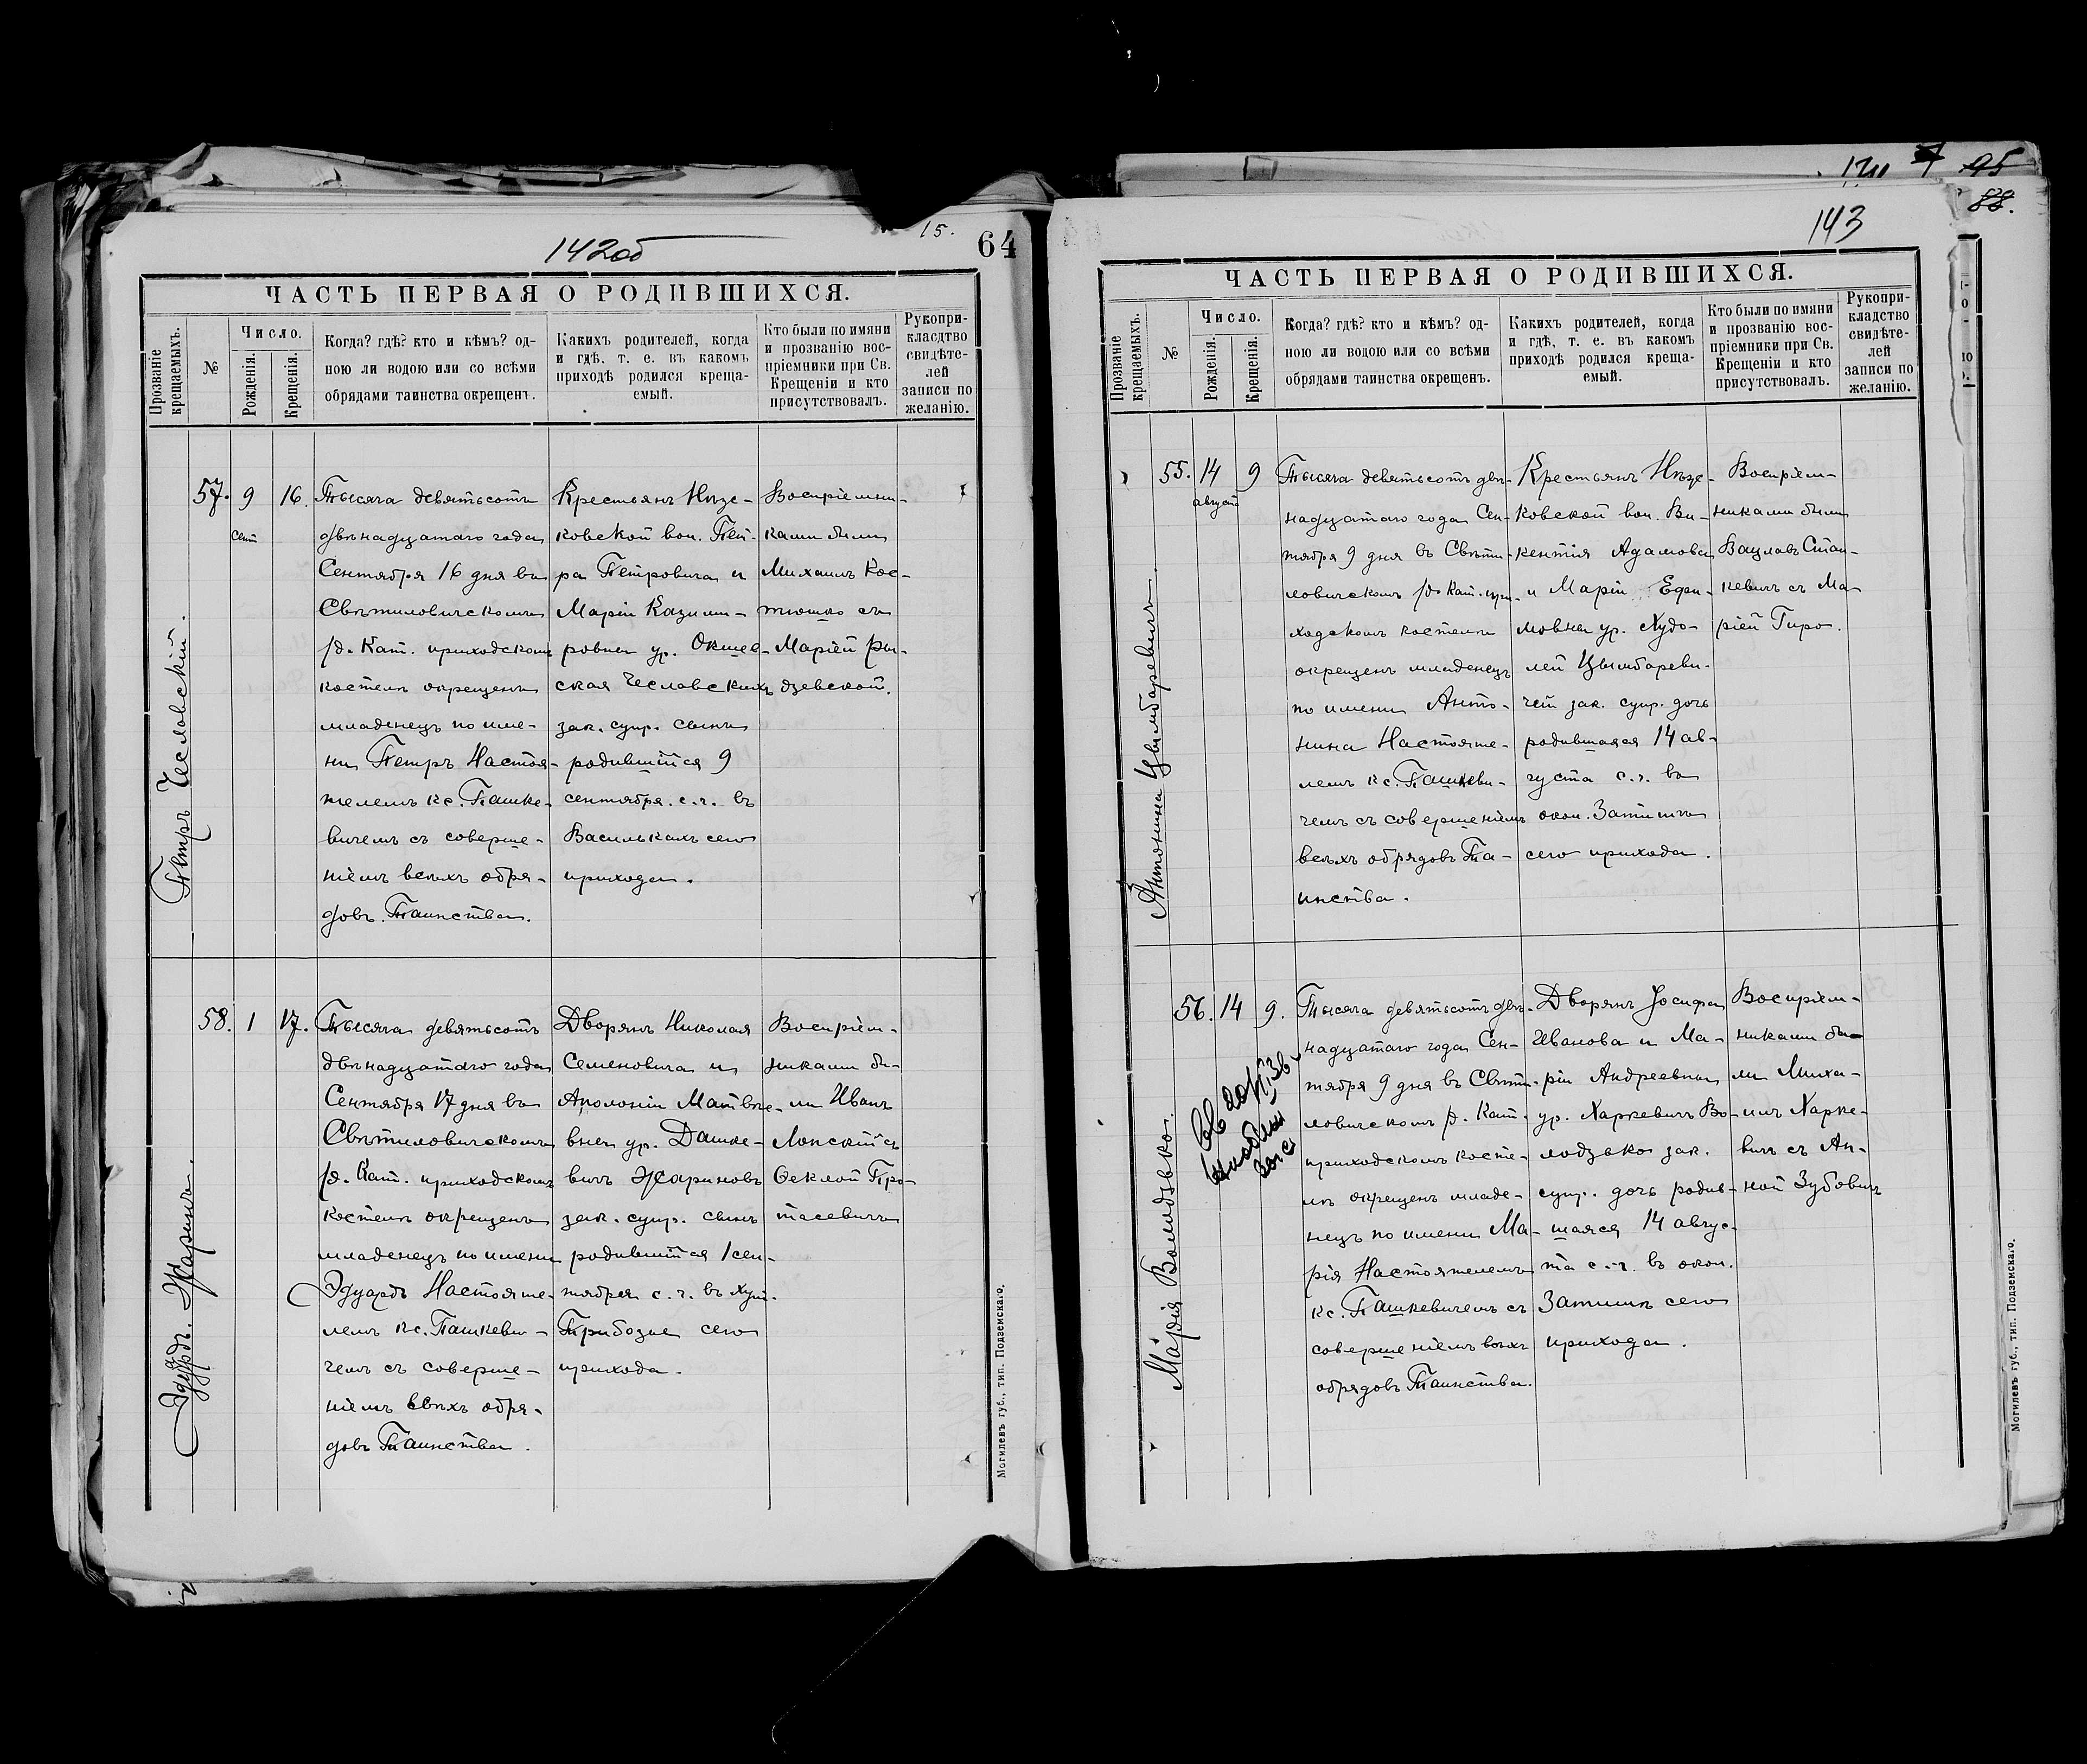 142об
15.
64
ЧАСТЬ ПЕРВАЯ О РОДИВШИХСЯ.
Прозваніе крещаемыхъ.
№
Число.
Рожденія.
Крещенія.
Когда? гдѣ? кто и кѣмъ? од-
ною ли водою или со всѣми
обрядами таинства окрещенъ.
Какихъ родителей, когда
и гдѣ, т. е. въ какомъ
приходѣ родился креща-
емый.
Кто были по имяни
и прозванію вос-
пріемники при Св.
Крещеніи и кто
присутствовалъ.
Рукопри-
класдтво
свидѣте-
лей
записи по
желанію.
Петръ Чесловскій.
57.
9
сент
16.
Тысяча девятьсотъ
двѣнадцатаго года
Сентября 16 дня въ
Свѣтиловичскомъ
р. Кат. приходскомъ
костелѣ окрещенъ
младенецъ по име-
ни Петръ Настоя-
телемъ кс. Пашке-
вичемъ съ соверше-
ніемъ всѣхъ обря-
довъ Таинства.
Крестьянъ Нѣзе-
ковской вол. Пет-
ра Петровича и
Маріи Казими-
ровны ур. Окшев-
ская Чесловскихъ
зак. супр. сынъ
родившійся 9
сентября с. г. въ
Василькахъ сего
прихода.
Воспріемни-
ками были
Михаилъ Кос-
тюшко съ
Маріей Ры-
дзевской.
Эдуардъ Жаринъ.
58.
1
17.
Тысяча девятьсотъ
двѣнадцатаго года
Сентября 17 дня въ
Свѣтиловичскомъ
р. Кат. приходскомъ
костелѣ окрещенъ
младенецъ по имени
Эдуардъ Настояте-
лемъ кс. Пашкеви-
чемъ съ соверше-
ніемъ всѣхъ обря-
довъ Таинства.
Дворянъ Николая
Семеновича и
Аполоніи Матвѣе-
вны ур. Дашке-
вичъ Жариновъ
зак. супр. сынъ
родившійся 1 сен-
тября с. г. въ хут.
Трибозне сего
прихода.
Воспріем-
никами бы-
ли Иванъ
Лонскій съ
Ѳеклой Про-
тасевичъ
Могилевъ губ., тип. Подземскаго.
95
88.
143
ЧАСТЬ ПЕРВАЯ О РОДИВШИХСЯ.
Прозваніе крещаемыхъ.
№
Число.
Рожденія.
Крещенія.
Когда? гдѣ? кто и кѣмъ? од-
ною ли водою или со всѣми
обрядами таинства окрещенъ.
Какихъ родителей, когда
и гдѣ, т. е. въ какомъ
приходѣ родился креща-
емый.
Кто были по имяни
и прозванію вос-
пріемники при Св.
Крещеніи и кто
присутствовалъ.
Рукопри-
кладство
свидѣте-
лей
записи по
желанію.
Антонина Цвымбаревичъ.
55.
14
август
9
Тысяча девятьсотъ двѣ-
надцатаго года Сен-
тября 9 дня въ Свѣти-
ловичскомъ р. Кат. при-
ходскомъ костелѣ
окрещенъ младенецъ
по имени Анто-
нина Настояте-
лемъ кс. Пашкеви-
чемъ съ совершеніемъ
всѣхъ обрядовъ Та-
инства.
Крестьянъ Нѣзе-
ковской вол. Ви-
кентія Адамова
и Маріи Ефи-
мовны ур. Худо-
лей Цвымбареви-
чей зак. супр. дочь
родившаяся 14 ав-
густа с. г. въ
окол. Затишѣ
сего прихода.
Воспріем-
никами были
Вацлавъ Стан-
кевичъ съ Ма-
ріей Гиро.
Марія Володзько.
56.
14
9.
Тысяча девятьсотъ двѣ-
надцатаго года Сен-
тября 9 дня въ Свѣти-
ловичскомъ р. Кат.
приходскомъ косте-
лѣ окрещенъ младе-
нецъ по имени Ма-
рія Настоятелемъ
кс. Пашкевичемъ съ
совершеніемъ всѣхъ
обрядовъ Таинства.
Дворянъ Іосифа
Иванова и Ма-
ріи Андреевны
ур. Харкевичъ Во-
лодзько зак.
супр. дочь родив-
шаяся 14 авгус-
та с. г. въ окол.
Затишѣ сего
прихода.
Воспріем-
никами бы-
ли Миха-
илъ Харке-
вичъ съ Ан-
ной Зубовичъ
Могилевъ губ., тип. Подземскаго.